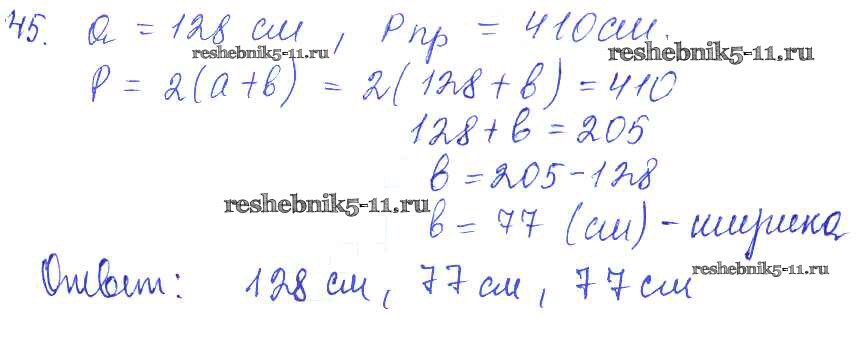 45. a = 128 см, Pпр = 410 см.
reshebnik5-11.ru reshebnik5-11.ru
P = 2(a+b) = 2(128+b) = 410
128+b = 205
b = 205-128
reshebnik5-11.ru
b = 77 (см) - ширина
reshebnik5-11.ru
Ответ: 128 см, 77 см, 77 см